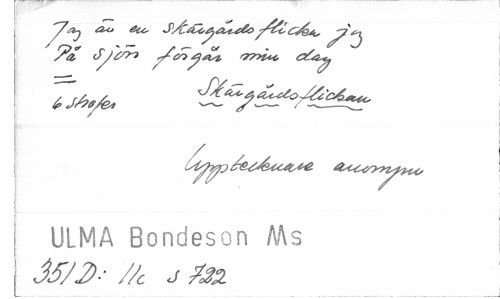 Jag är en skärgårdsflicka jag
På sjön förgår min dag
=
6 strofer Skärgårdsflickan
Upptecknare anonym
ULMA Bondeson Ms
351 D: 11c s 722